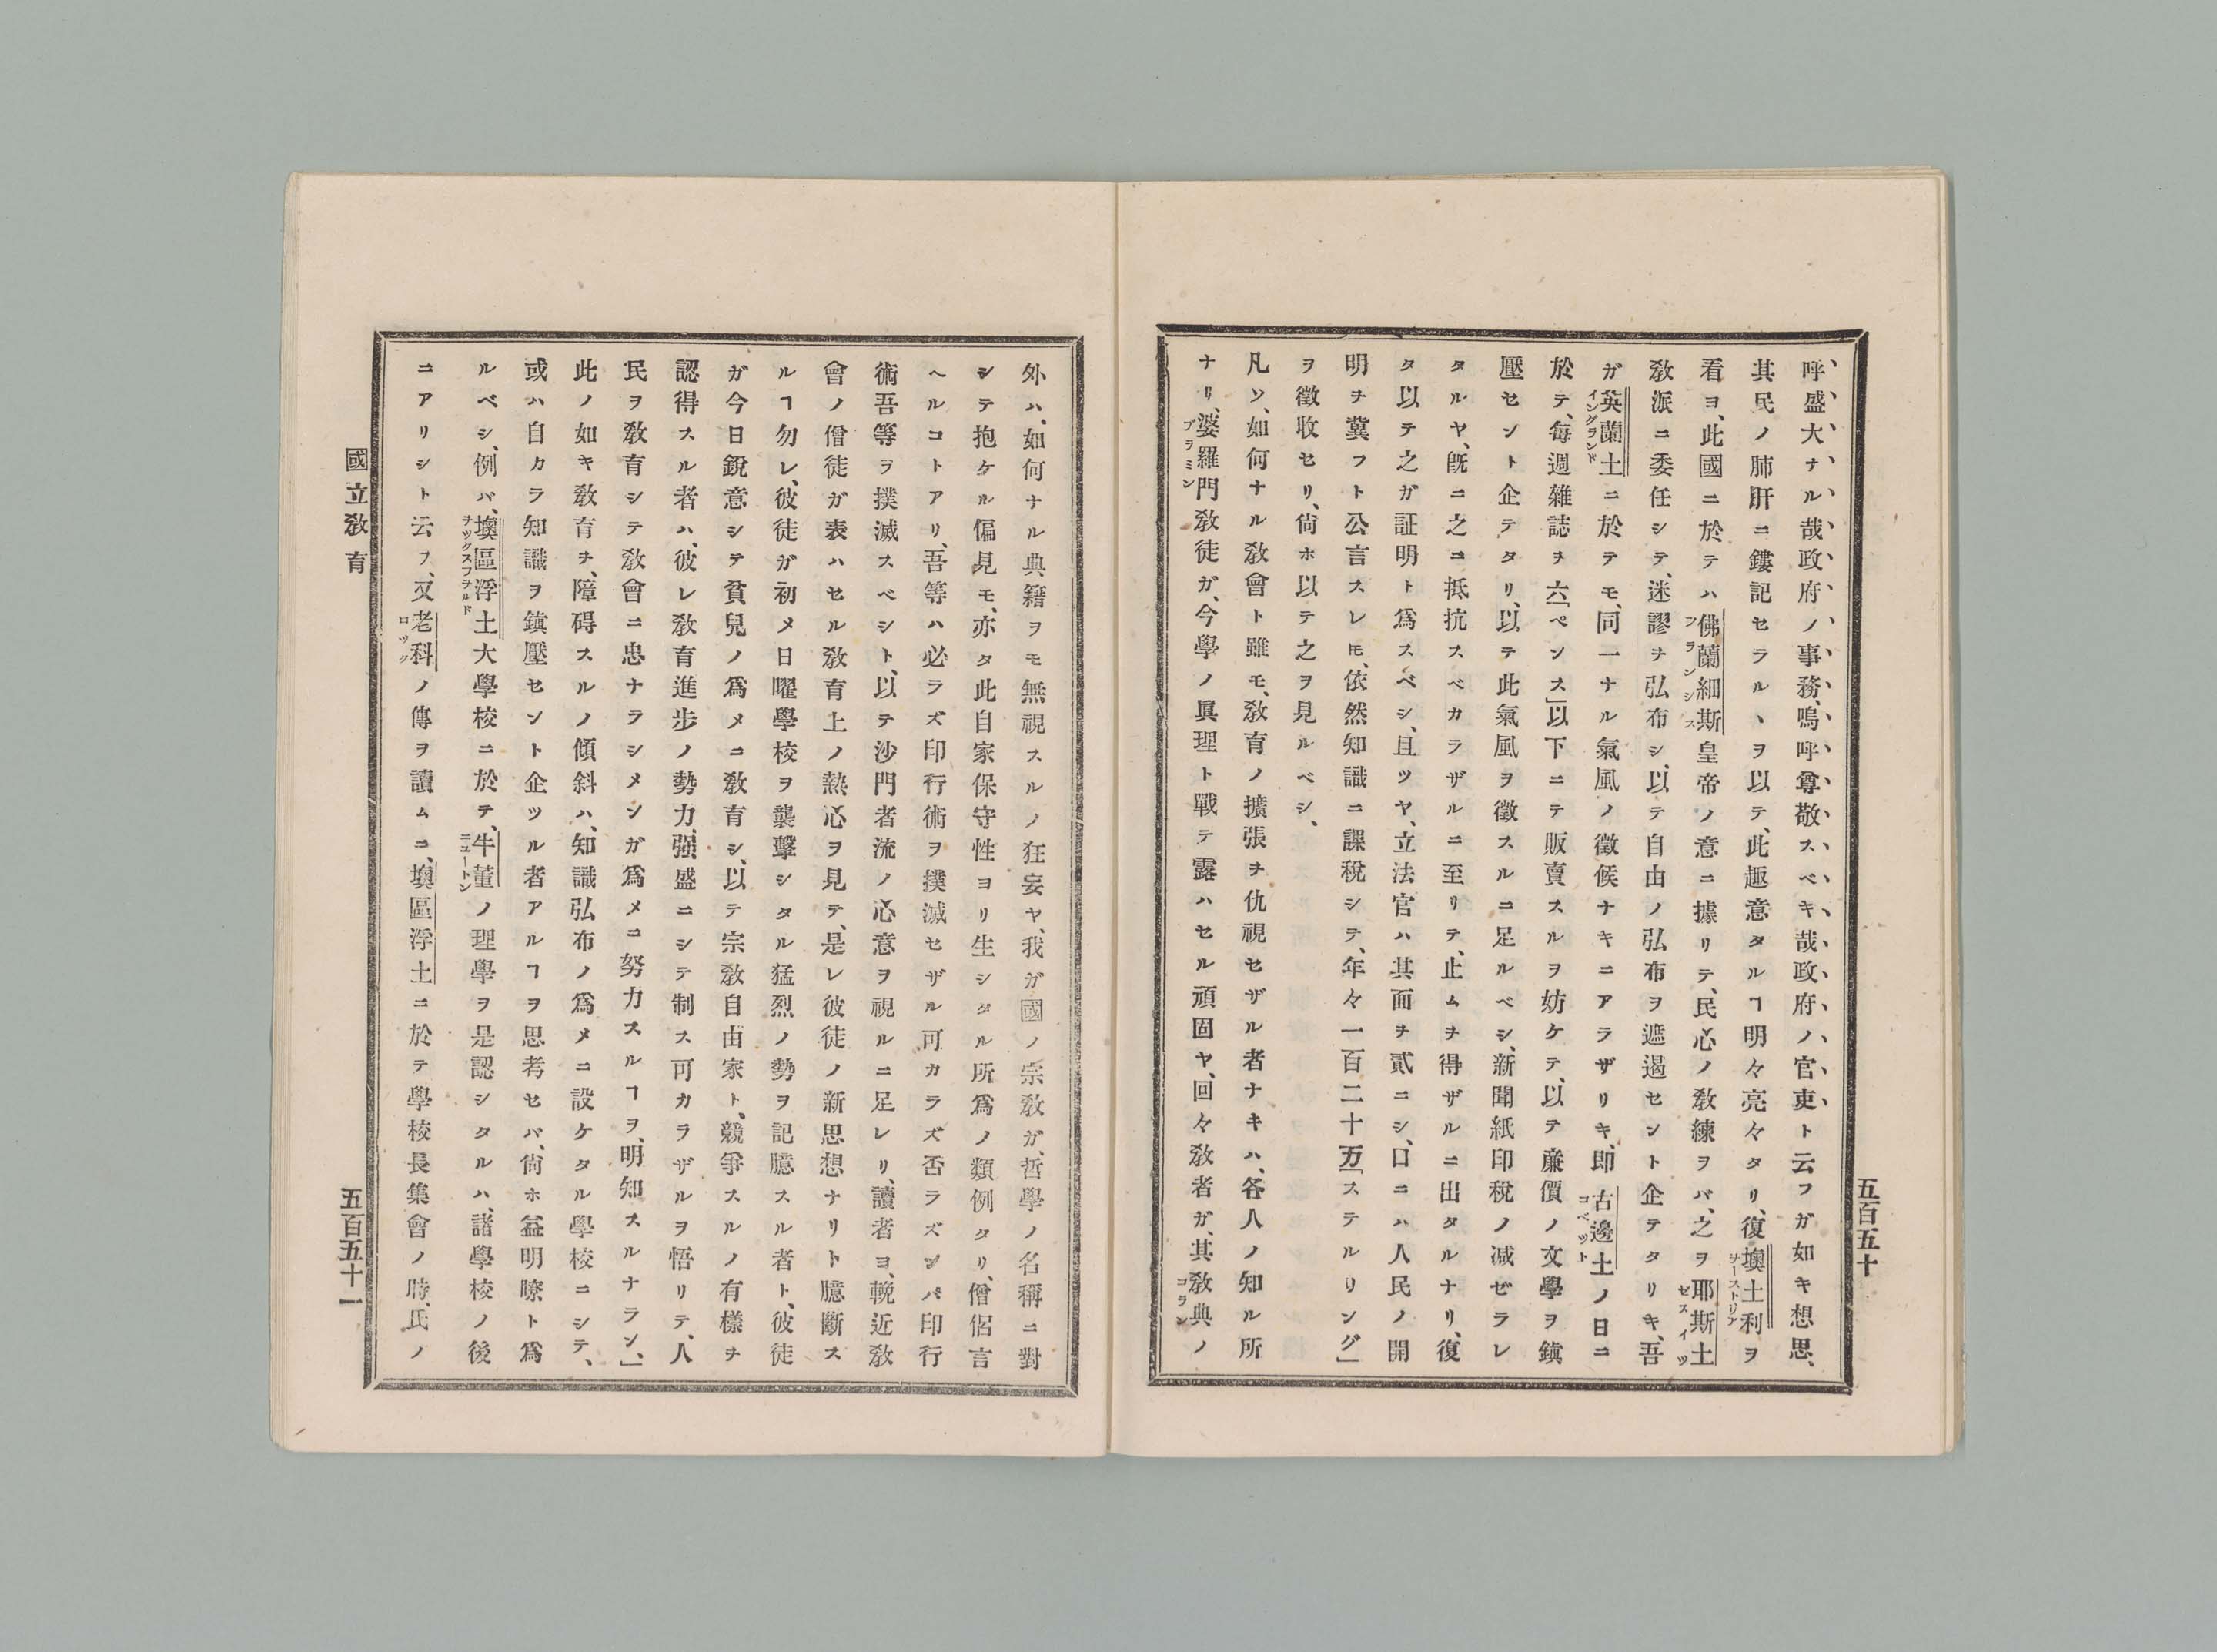 五百五十
呼盛大ナル哉政府ノ事務、嗚呼尊敬スベキ哉政府ノ官吏ト云フガ如キ想思、
其民ノ肺肝ニ鏤記セラルヽヲ以テ、此趣意タルヿ明々亮々タリ、復墺土利ヲ
オーストリア
看ヨ、此國ニ於テハ佛蘭細斯皇帝ノ意ニ據リテ、民心ノ敎練ヲバ、之ヲ耶斯土
フランシス
ゼスイツ
敎派ニ委任シテ、迷謬ヲ弘布シ、以テ自由ノ弘布ヲ遮遏セント企テタリキ、吾
ガ英蘭土ニ於テモ、同一ナル氣風ノ徵候ナキニアラザリキ、即古邊土ノ日ニ
イングランド
コベット
於テ、每週雜誌ヲ六「ペンス」以下ニテ販賣スルヲ妨ケテ、以テ廉價ノ文學ヲ鎭
壓セント企テタリ、以テ此氣風ヲ徵スルニ足ルベシ、新聞紙印稅ノ减ゼラレ
タルヤ、旣ニ之ニ抵抗スベカラザルニ至リテ、止ムヲ得ザルニ出タルナリ、復
タ以テ之ガ証明ト爲スベシ、且ツヤ、立法官ハ其面ヲ貳ニシ、口ニハ人民ノ開
明ヲ冀フト公言スレドモ、依然知識ニ課稅シテ、年々一百二十万「ステルリング」
ヲ徵收セリ、尙ホ以テ之ヲ見ルベシ、
凡ソ、如何ナル敎會ト雖モ、敎育ノ擴張ヲ仇視セザル者ナキハ、各人ノ知ル所
ナリ、婆羅門敎徒ガ、今學ノ眞理ト戰テ露ハセル頑固ヤ、回々敎者ガ、其敎典ノ
ブラミン
コラン
外ハ、如何ナル典籍ヲモ無視スルノ狂妄ヤ、我ガ國ノ宗敎ガ、哲學ノ名稱ニ對
シテ抱ケル偏見モ、亦タ此自家保守性ヨリ生シタル所爲ノ類例タリ、僧侶言
ヘルコトアリ、吾等ハ必ラズ印行術ヲ撲滅セザル可カラズ否ラズンバ印行
術吾等ヲ撲滅スベシト、以テ沙門者流ノ心意ヲ視ルニ足レリ、讀者ヨ、輓近敎
會ノ僧徒ガ表ハセル敎育上ノ熱心ヲ見テ、是レ彼徒ノ新思想ナリト臆斷ス
ルヿ勿レ、彼徒ガ初メ日曜學校ヲ襲擊シタル猛烈ノ勢ヲ記臆スル者ト、彼徒
ガ今日銳意シテ貧兒ノ爲メニ敎育シ、以テ宗敎自由家ト、競爭スルノ有樣ヲ
認得スル者ハ、彼レ敎育進步ノ勢力、强盛ニシテ制ス可カラザルヲ悟リテ、人
民ヲ敎育シテ敎會ニ忠ナラシメンガ爲メニ努力スルヿヲ、明知スルナラン、」
此ノ如キ敎育ヲ、障碍スルノ傾斜ハ、知識弘布ノ爲メニ設ケタル學校ニシテ、
或ハ自カラ知識ヲ鎭壓セント企ツル者アルヿヲ思考セバ、尙ホ益明瞭ト爲
ルベシ、例バ、墺區浮土大學校ニ於テ、牛董ノ理學ヲ是認シタルハ、諸學校ノ後
オックスフオルド
ニュートン
ニアリシト云フ、又老科ノ傳ヲ讀ムニ、墺區浮土ニ於テ學校長集會ノ時、氏ノ
ロック
國立敎育
五百五十一